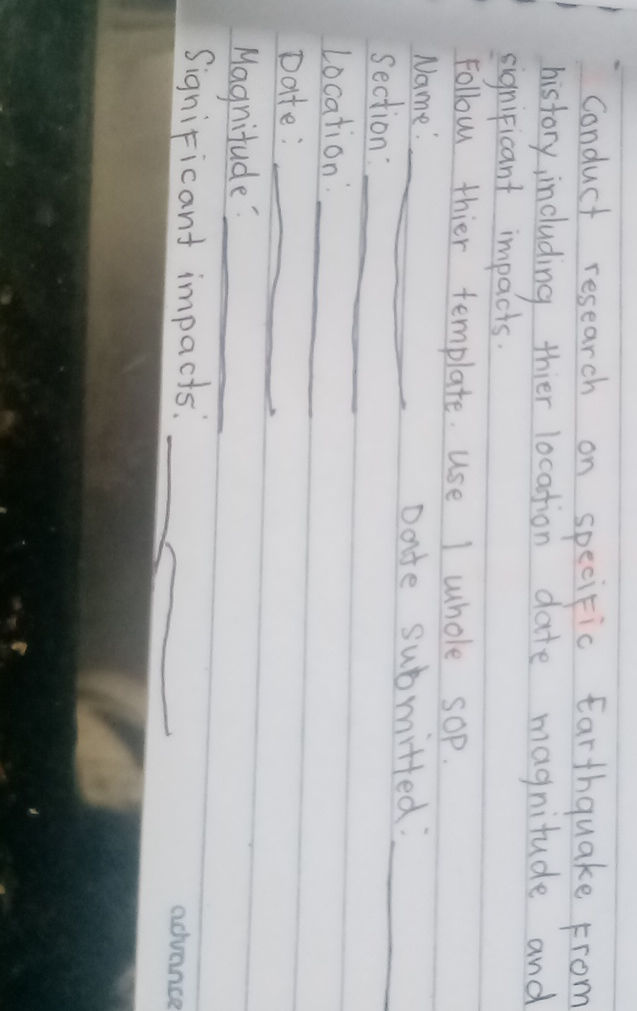 Conduct research on specific Earthquake From
history, including thier location date magnitude and
significant impacts.
Follow thier template. Use 1 whole SOP.
Name: Date submitted:
Section:
Location:
Date:
Magnitude:
Significant impacts:
advance